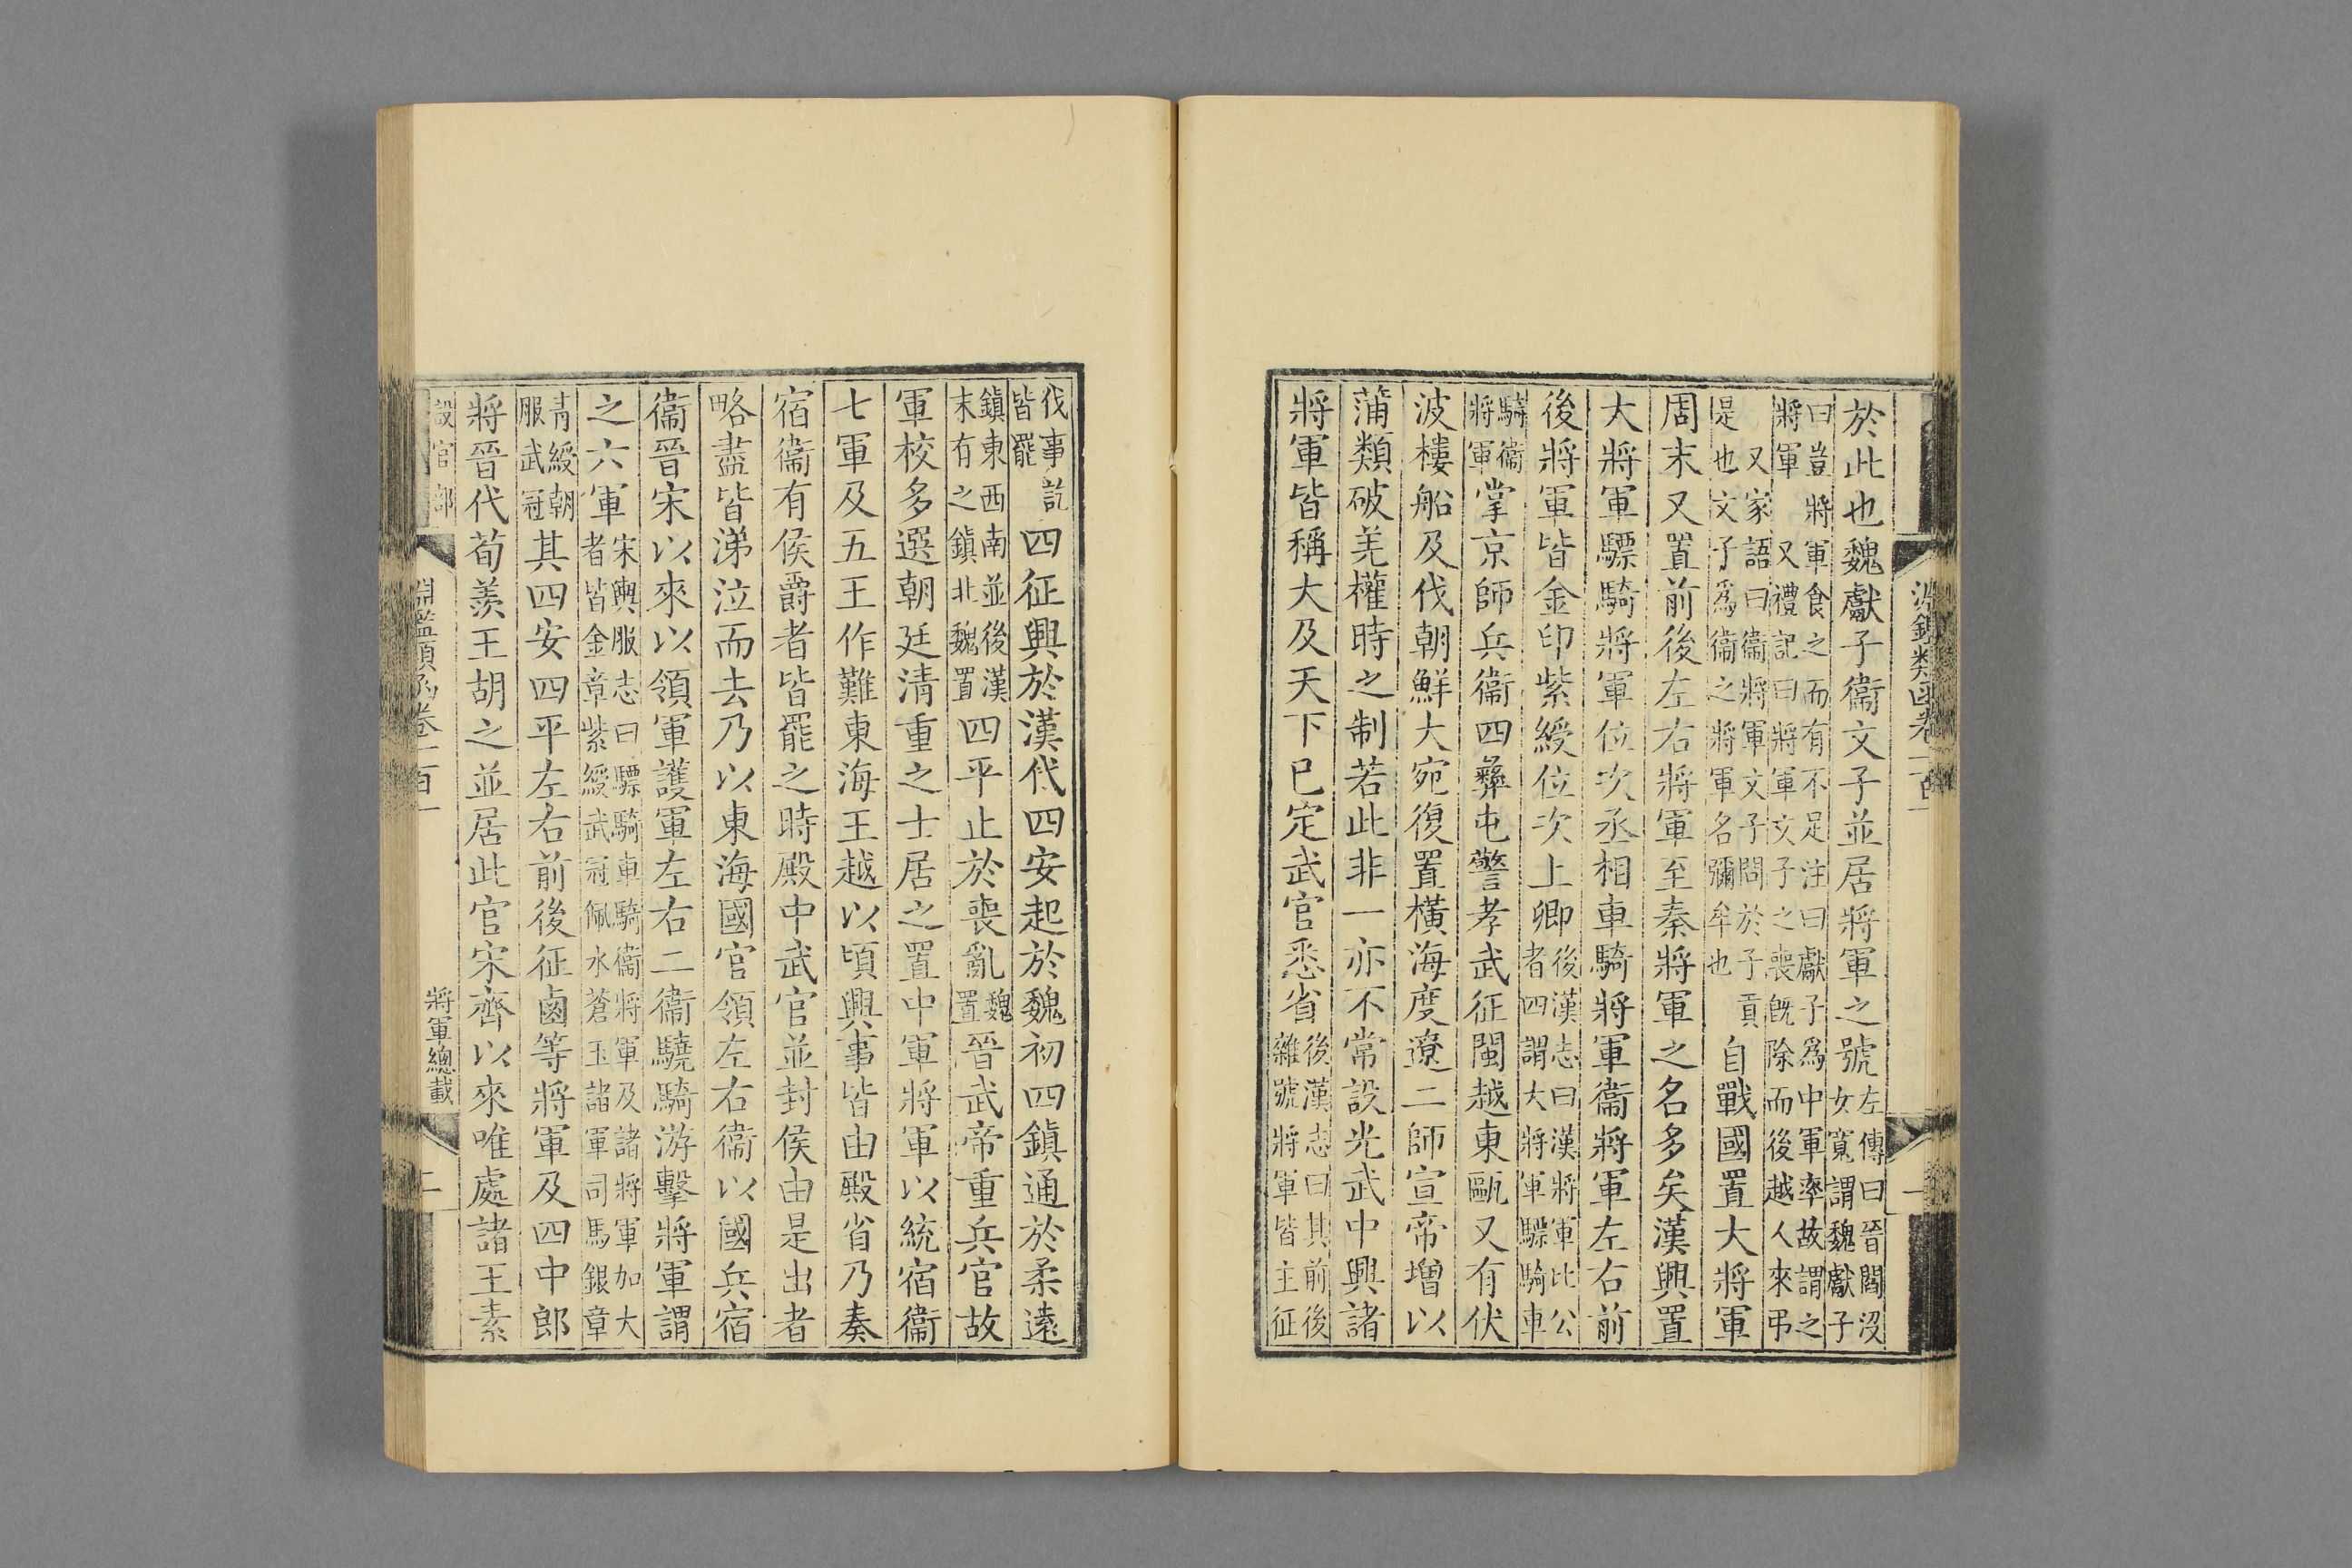 淵鑑類函卷一百一
於此也魏獻子衞文子並居將軍之號左傳曰晉閻沒女寬謂魏獻子
曰豈將軍食之而有不足注曰獻子爲中軍率故謂之將軍又禮記曰將軍文子之喪旣除而後越人來弔
又家語曰衞將軍文子問於子貢是也文子爲衞之將軍名彌牟也自戰國置大將軍
周末又置前後左右將軍至秦將軍之名多矣漢興置
大將軍驃騎將軍位次丞相車騎將軍衞將軍左右前
後將軍皆金印紫綬位次上卿後漢志曰漢將軍比公者四謂大將軍驃騎車
騎衞將軍掌京師兵衞四彝屯警孝武征閩越東甌又有伏
波樓船及伐朝鮮大宛復置橫海度遼二師宣帝增以
蒲類破羌權時之制若此非一亦不常設光武中興諸
將軍皆稱大及天下已定武官悉省後漢志曰其前後雜號將軍皆主征
伐事訖皆罷四征興於漢代四安起於魏初四鎮通於柔遠
鎮東西南並後漢末有之鎮北魏置四平止於喪亂魏置晉武帝重兵官故
軍校多選朝廷清重之士居之置中軍將軍以統宿衞
七軍及五王作難東海王越以頃興事皆由殿省乃奏
宿衞有侯爵者皆罷之時殿中武官並封侯由是出者
略盡皆涕泣而去乃以東海國官領左右衞以國兵宿
衞晉宋以來以領軍護軍左右二衞驍騎游擊將軍謂
之六軍宋輿服志曰驃騎車騎衞將軍及諸將軍加大者皆金章紫綬武冠佩水蒼玉諸軍司馬銀章
青綬朝服武冠其四安四平左右前後征鹵等將軍及四中郎
將晉代荀羨王胡之並居此官宋齊以來唯處諸王素
設官部
淵鑑類函卷一百一
將軍總載
二